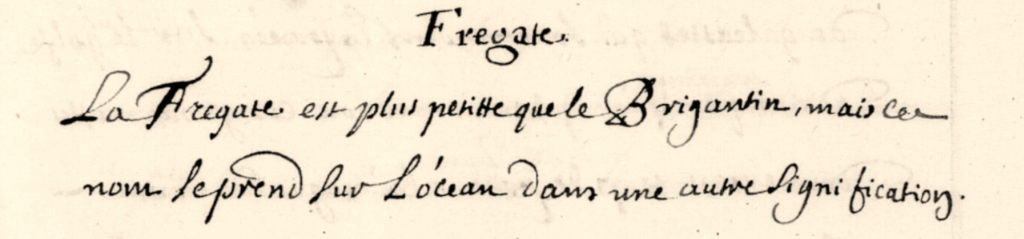 Fregate.
La Fregate est plus petitte que le Brigantin, mais ce
nom se prend sur L'ócean dans une autre signification.